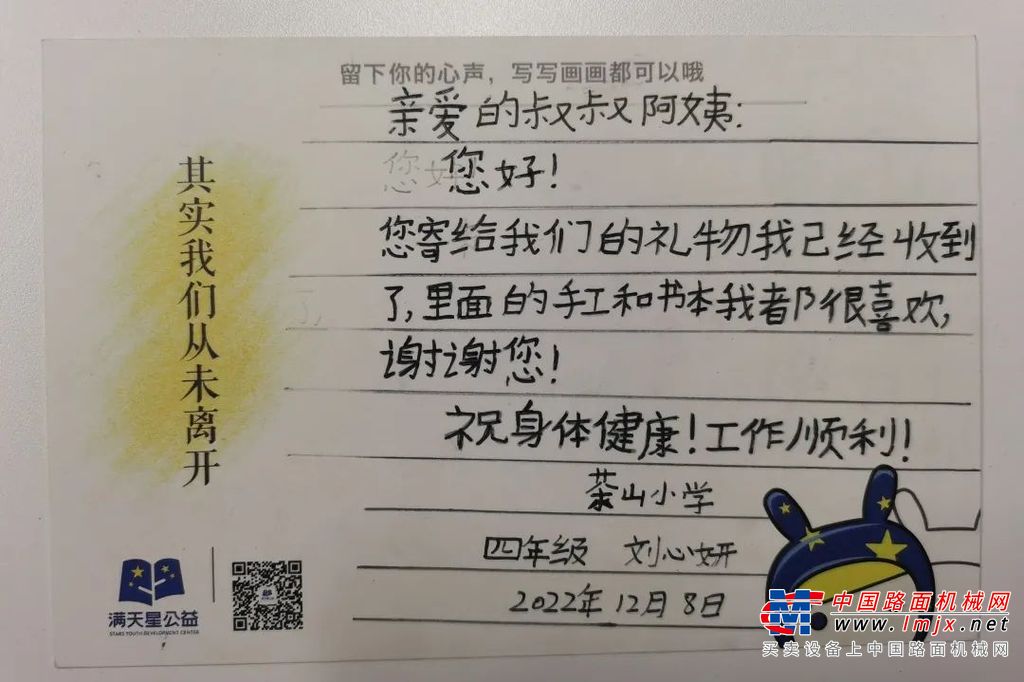 留下你的心声，写写画画都可以哦
亲爱的叔叔阿姨：
您好
您好！
您寄给我们的礼物我已经收到
了，里面的手工和书本我都很喜欢，
谢谢您！
祝身体健康！工作顺利！
茶山小学
四年级 刘心妍
2022年12月8日
其实我们从未离开
满天星公益
STARS YOUTH DEVELOPMENT CENTER
中国路面机械网
www.lmjx.net
买卖设备上中国路面机械网